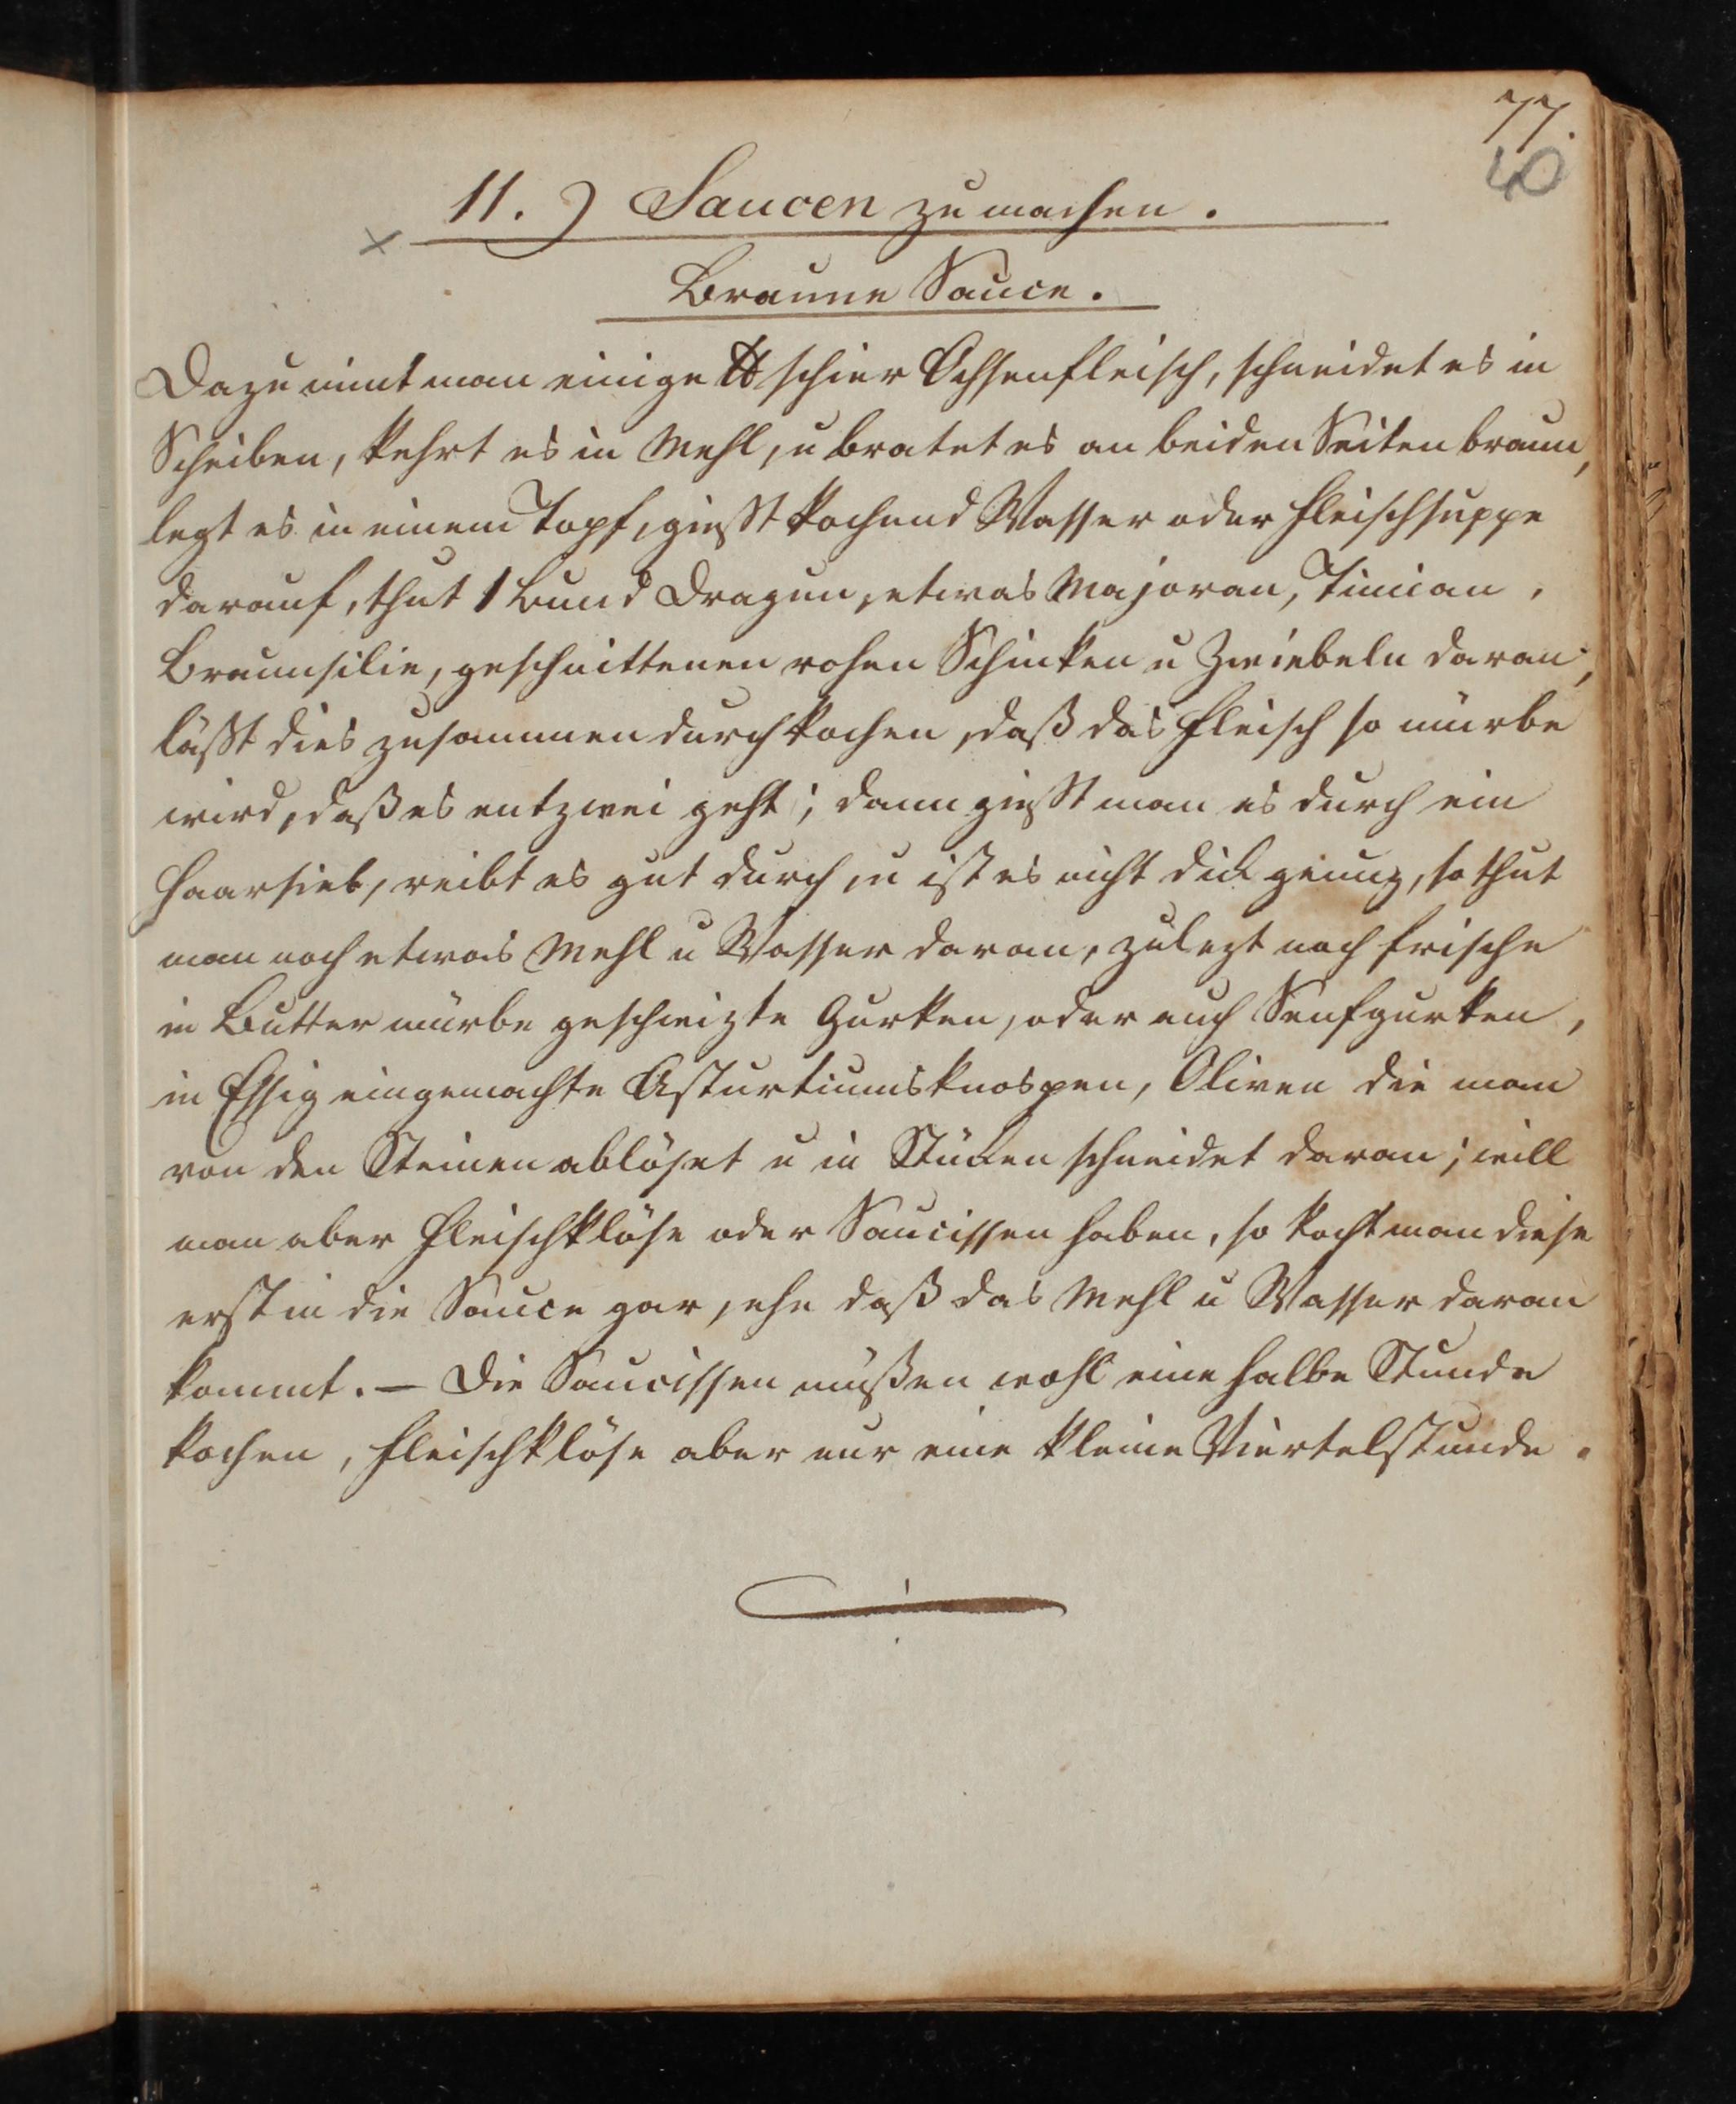 77.
40
11.) Saucen zu machen.
Braune Sauce.
Dazu nimt man einige ℔ schier Ochsenfleisch, schneidet es in
Scheiben, kehrt es in Mehl, u bratet es an beiden Seiten braun,
legt es in einem Topf, giesst kochend Wasser oder Fleischsuppe
darauf, thut 1 Bund Dragun, etwas Majoran, Timian,
Braunsilie, geschnittenen rohen Schinken u Zwiebeln daran,
lässt dies zusammen durchkochen, daß das Fleisch so mürbe
wird, daß es entzwei geht; dann giesst man es durch ein
Haarsieb, reibt es gut durch, u ist es nicht dick genug, so thut
man noch etwas Mehl u Wasser daran, zulezt noch frische
in Butter mürbe geschwizte Gurken, oder auch Senfgurken,
in Essig eingemachte Asturtiumsknospen, Oliven die man
von den Steinen ablöset u in Stücken schneidet daran; will
man aber Fleischklöse oder Saucissen haben, so kocht man diese
erst in die Sauce gar, ehe daß das Mehl u Wasser daran
kommt. — Die Saucissen müßen wohl eine halbe Stunde
kochen, Fleischklöse aber nur eine kleine Viertelstunde.